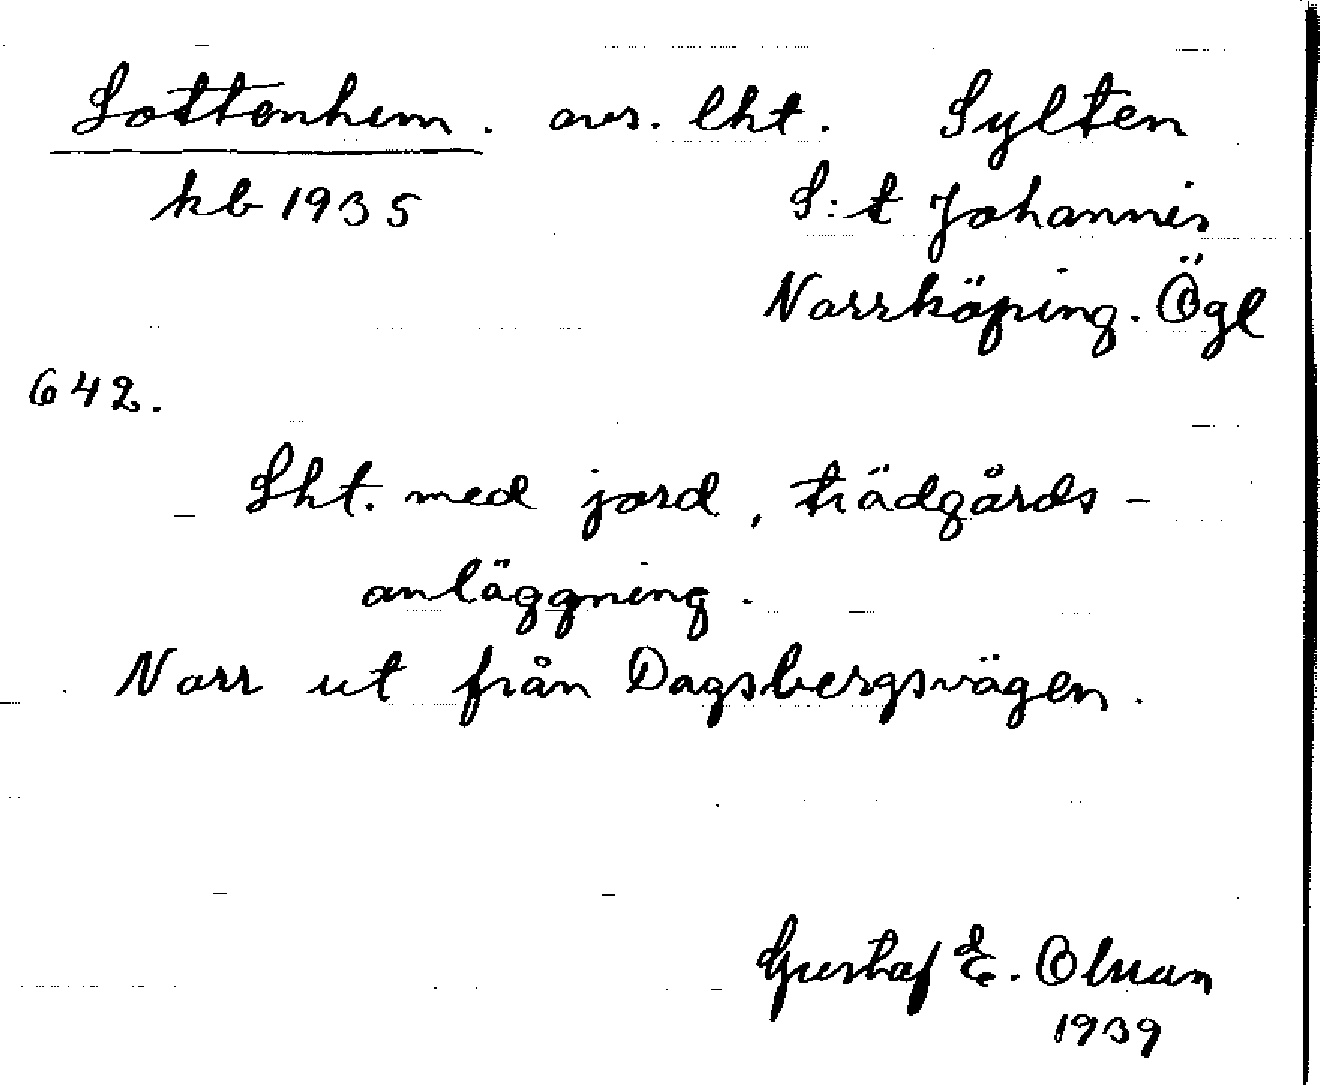 Lottenhem. avs. lht. Sylten
kb 1935 S:t Johannis
Norrköping. Ögl
642.
Lht. med jord, trädgårds-
anläggning.
Norr ut från Dagsbergsvägen.
Gustaf E. Olsson
1939